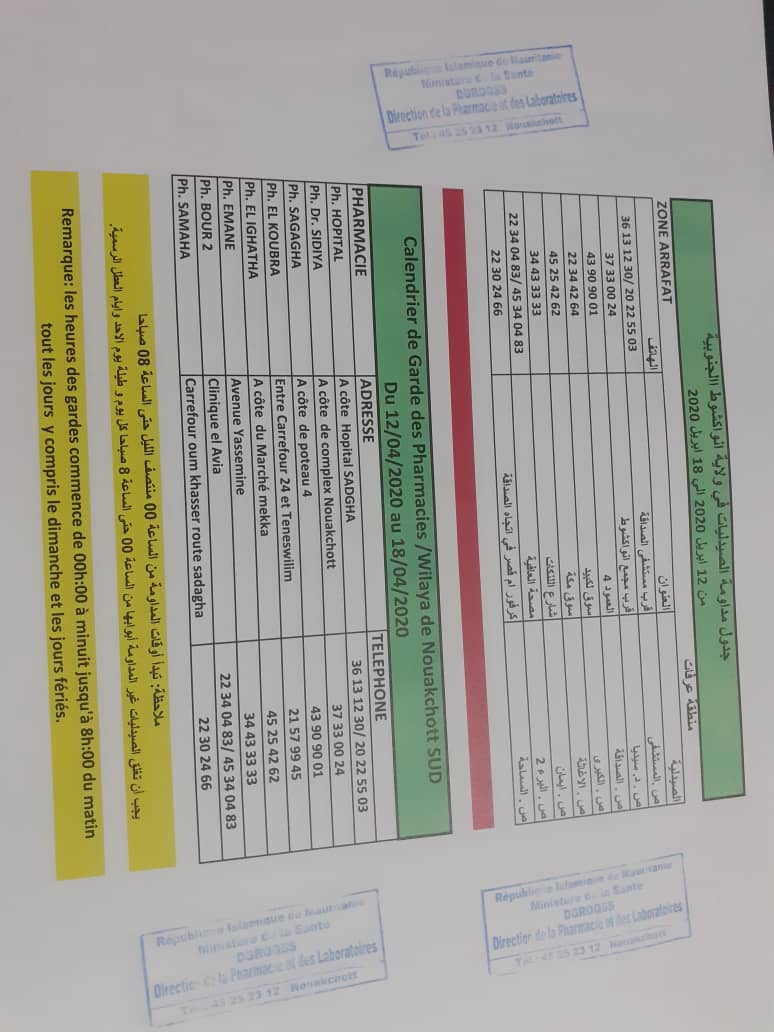 جدول مداومة الصيدليات في ولاية انواكشوط الجنوبية
من 12 ابريل 2020 الى 18 ابريل 2020
ZONE ARRAFAT منطقة عرفات
الصيدلية العنوان الهاتف
ص . المستشفى قرب مستشفى الصداقة 36 13 12 30/ 20 22 55 03
ص . د. سيديا قرب مجمع انواكشوط 37 33 00 24
ص . الصداقة 4 43 90 90 01
ص . الكبرى سوق لكبيد 22 34 42 64
ص . الاغاثة سوق مكة 45 25 42 62
ص . ايمان شارع 34 43 33 33
ص . البرء 2 مصحة العافية 22 34 04 83/ 45 34 04 83
ص . السماحة كرفور ام قصر في اتجاه الصداقة 22 30 24 66
Calendrier de Garde des Pharmacies /Wilaya de Nouakchott SUD
Du 12/04/2020 au 18/04/2020
PHARMACIE ADRESSE TELEPHONE
Ph. HOPITAL A côte Hopital SADGHA 36 13 12 30/ 20 22 55 03
Ph. Dr. SIDIYA A côte de complex Nouakchott 37 33 00 24
Ph. SAGAGHA A côte de poteau 4 43 90 90 01
Ph. EL KOUBRA Entre Carrefour 24 et Teneswilim 21 57 99 45
Ph. EL IGHATHA A côte du Marché mekka 45 25 42 62
Ph. EMANE Avenue Yassemine 34 43 33 33
Ph. BOUR 2 Clinique el Avia 22 34 04 83/ 45 34 04 83
Ph. SAMAHA Carrefour oum khasser route sadagha 22 30 24 66
ملاحظة: تبدأ أوقات المداومة من الساعة 00 منتصف الليل حتى الساعة 08 صباحا
يجب أن تغلق الصيدليات غير المداومة أبوابها من الساعة 00 حتى الساعة 8 صباحا كل يوم و طيلة يوم الاحد وايام العطل الرسمية.
Remarque: les heures des gardes commence de 00h:00 à minuit jusqu'à 8h:00 du matin
tout les jours y compris le dimanche et les jours fériés.
République Islamique de Mauritanie
Ministère de la Sante
DGROQSS
Direction de la Pharmacie et des Laboratoires
Tel : 45 25 23 12 Nouakchott
République Islamique de Mauritanie
Ministère de la Sante
DGROQSS
Direction de la Pharmacie et des Laboratoires
Tel : 45 25 23 12 Nouakchott
République Islamique de Mauritanie
Ministère de la Sante
DGROQSS
Direction de la Pharmacie et des Laboratoires
Tel : 45 25 23 12 Nouakchott